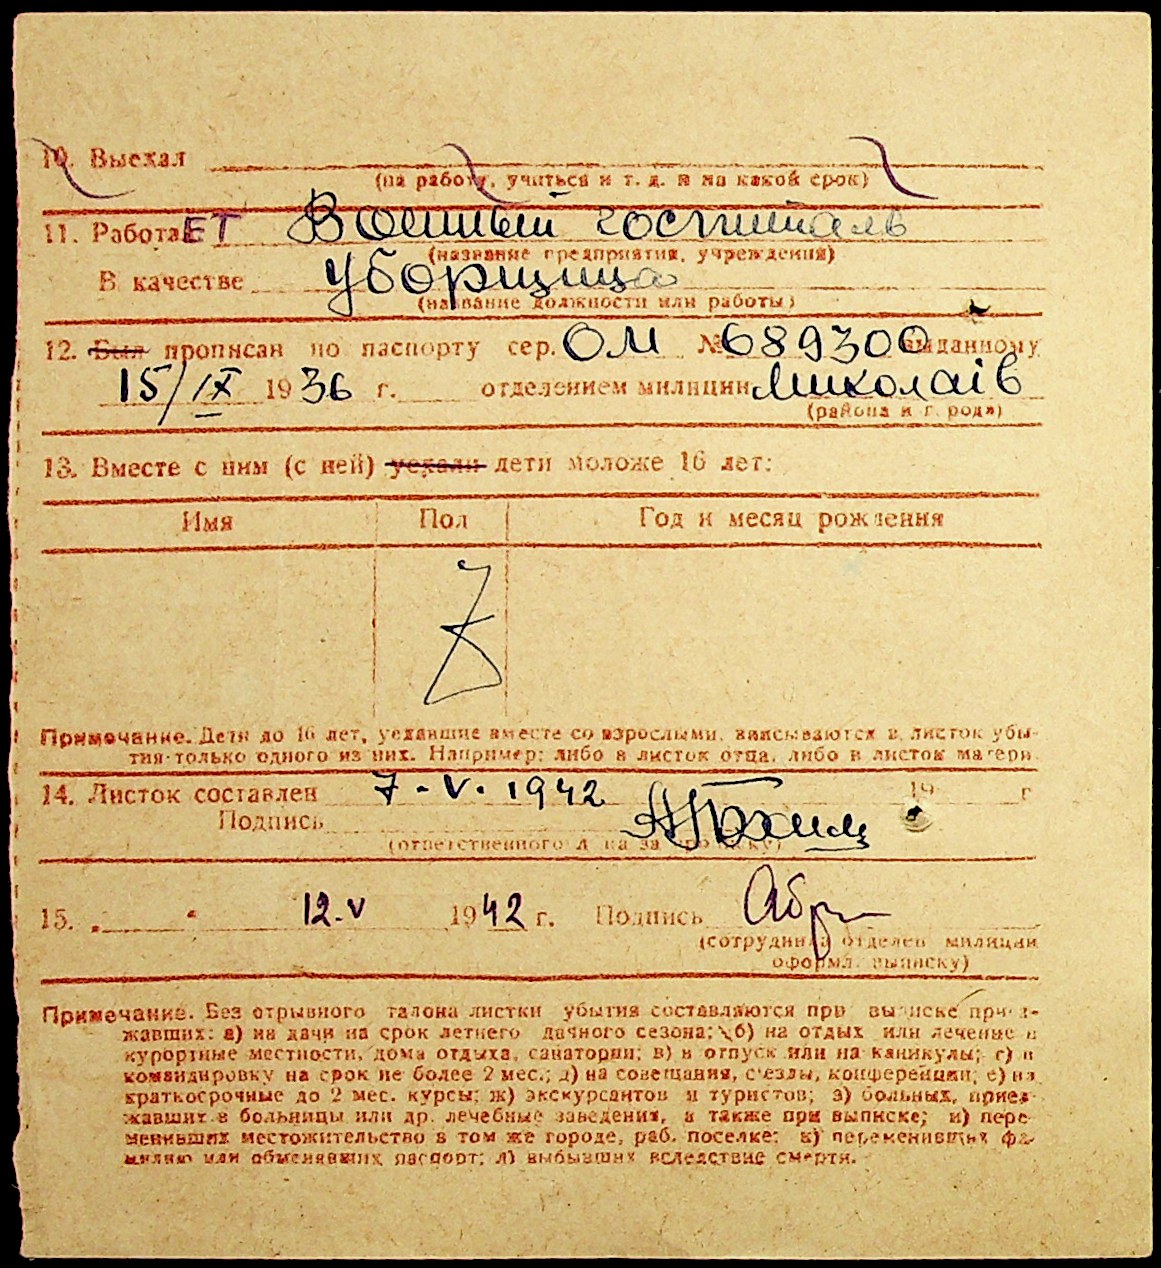 10. Выехал
(на работу, учиться и т. д. и на какой срок)
11. РаботаЕТ Военный госпиталь
(название предприятия, учреждения)
В качестве уборщица
(название должности или работы)
12. Был прописан по паспорту сер. ОМ № 689300 выданному
15/IX 1936 г. отделением милиции Миколаїв
(района и города)
13. Вместе с ним (с ней) уехали дети моложе 16 лет:
Имя Пол Год и месяц рождения
Z
Примечание. Дети до 16 лет, уехавшие вместе со взрослыми, вписываются в листок убы-
тия только одного из них. Например: либо в листок отца, либо в листок матери.
14. Листок составлен 7-V-1942 19 г
Подпись
(ответственного лица за прописку)
15. „ “ 12-V 1942 г. Подпись
(сотрудника отделен. милиции
оформл. выписку)
Примечание. Без отрывного талона листки убытия составляются при выписке приез-
жавших: а) на дачи на срок летнего дачного сезона; б) на отдых или лечение в
курортные местности, дома отдыха, санатории; в) в отпуск или на каникулы; г) в
командировку на срок не более 2 мес.; д) на совещания, съезды, конференции; е) на
краткосрочные до 2 мес. курсы; ж) экскурсантов и туристов; з) больных, приез-
жавших в больницы или др. лечебные заведения, а также при выписке; и) пере-
менивших местожительство в том же городе, раб. поселке; к) переменивших фа-
милию или обменявших паспорт; л) выбывших вследствие смерти.